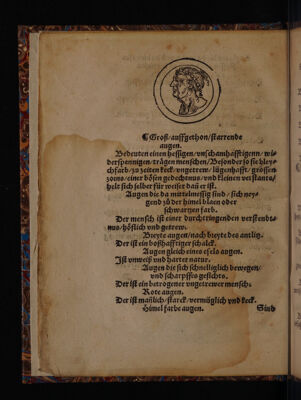 ¶ Groß/auffgethon/starrende
augen.
Bedeuten einen hessigen/vnschamhafftigenn/wi-
derspennigen/trägen menschen/Besonder so sie bley-
chfarb/zu zeiten keck/vngetrew/lügenhafft/grossen
zorns/einer bösen gedechtnus/vnd kleinen verstants/
helt sich selber für weiser dañ er ist.
Augen die da mittelmessig sind/sich ney-
gend zů der himel blaen oder
schwartzen farb.
Der mensch ist einer durchtringenden verstendt-
nus/höflich vnd getrew.
Breyte augen/nach breyte des antlitz.
Der ist ein boßhafftiger schalck.
Augen gleich eines esels augen.
Ist vnweiß vnd harter natur.
Augen die sich schnelliglich bewegen/
vnd scharpffes gesichts.
Der ist ein betrogener vngetrewer mensch.
Rote augen.
Der ist mañlich/starck/vermüglich vnd keck.
Himel farbe augen. Sind